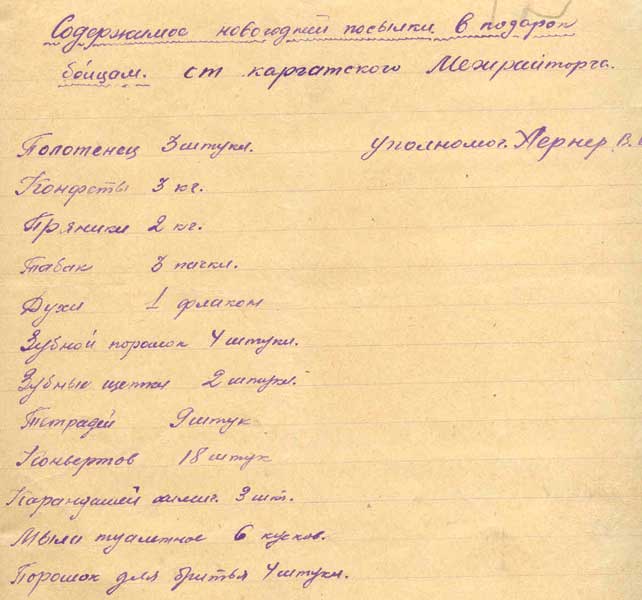 Содержимое новогодней посылки в подарок
бойцам. ст каргатского Межрайторга.
Полотенец 3 штуки. уполномог. Лернер В.
Конфеты 3 кг.
Пряники 2 кг.
Табак 3 пачки.
Духи 1 флакон
Зубной порошок 4 штуки.
Зубные щетки 2 штуки.
Тетрадей 9 штук
Конвертов 18 штук
Карандашей химиг. 3 шт.
Мыла туалетное 6 кусков.
Порошок для бритья 4 штуки.